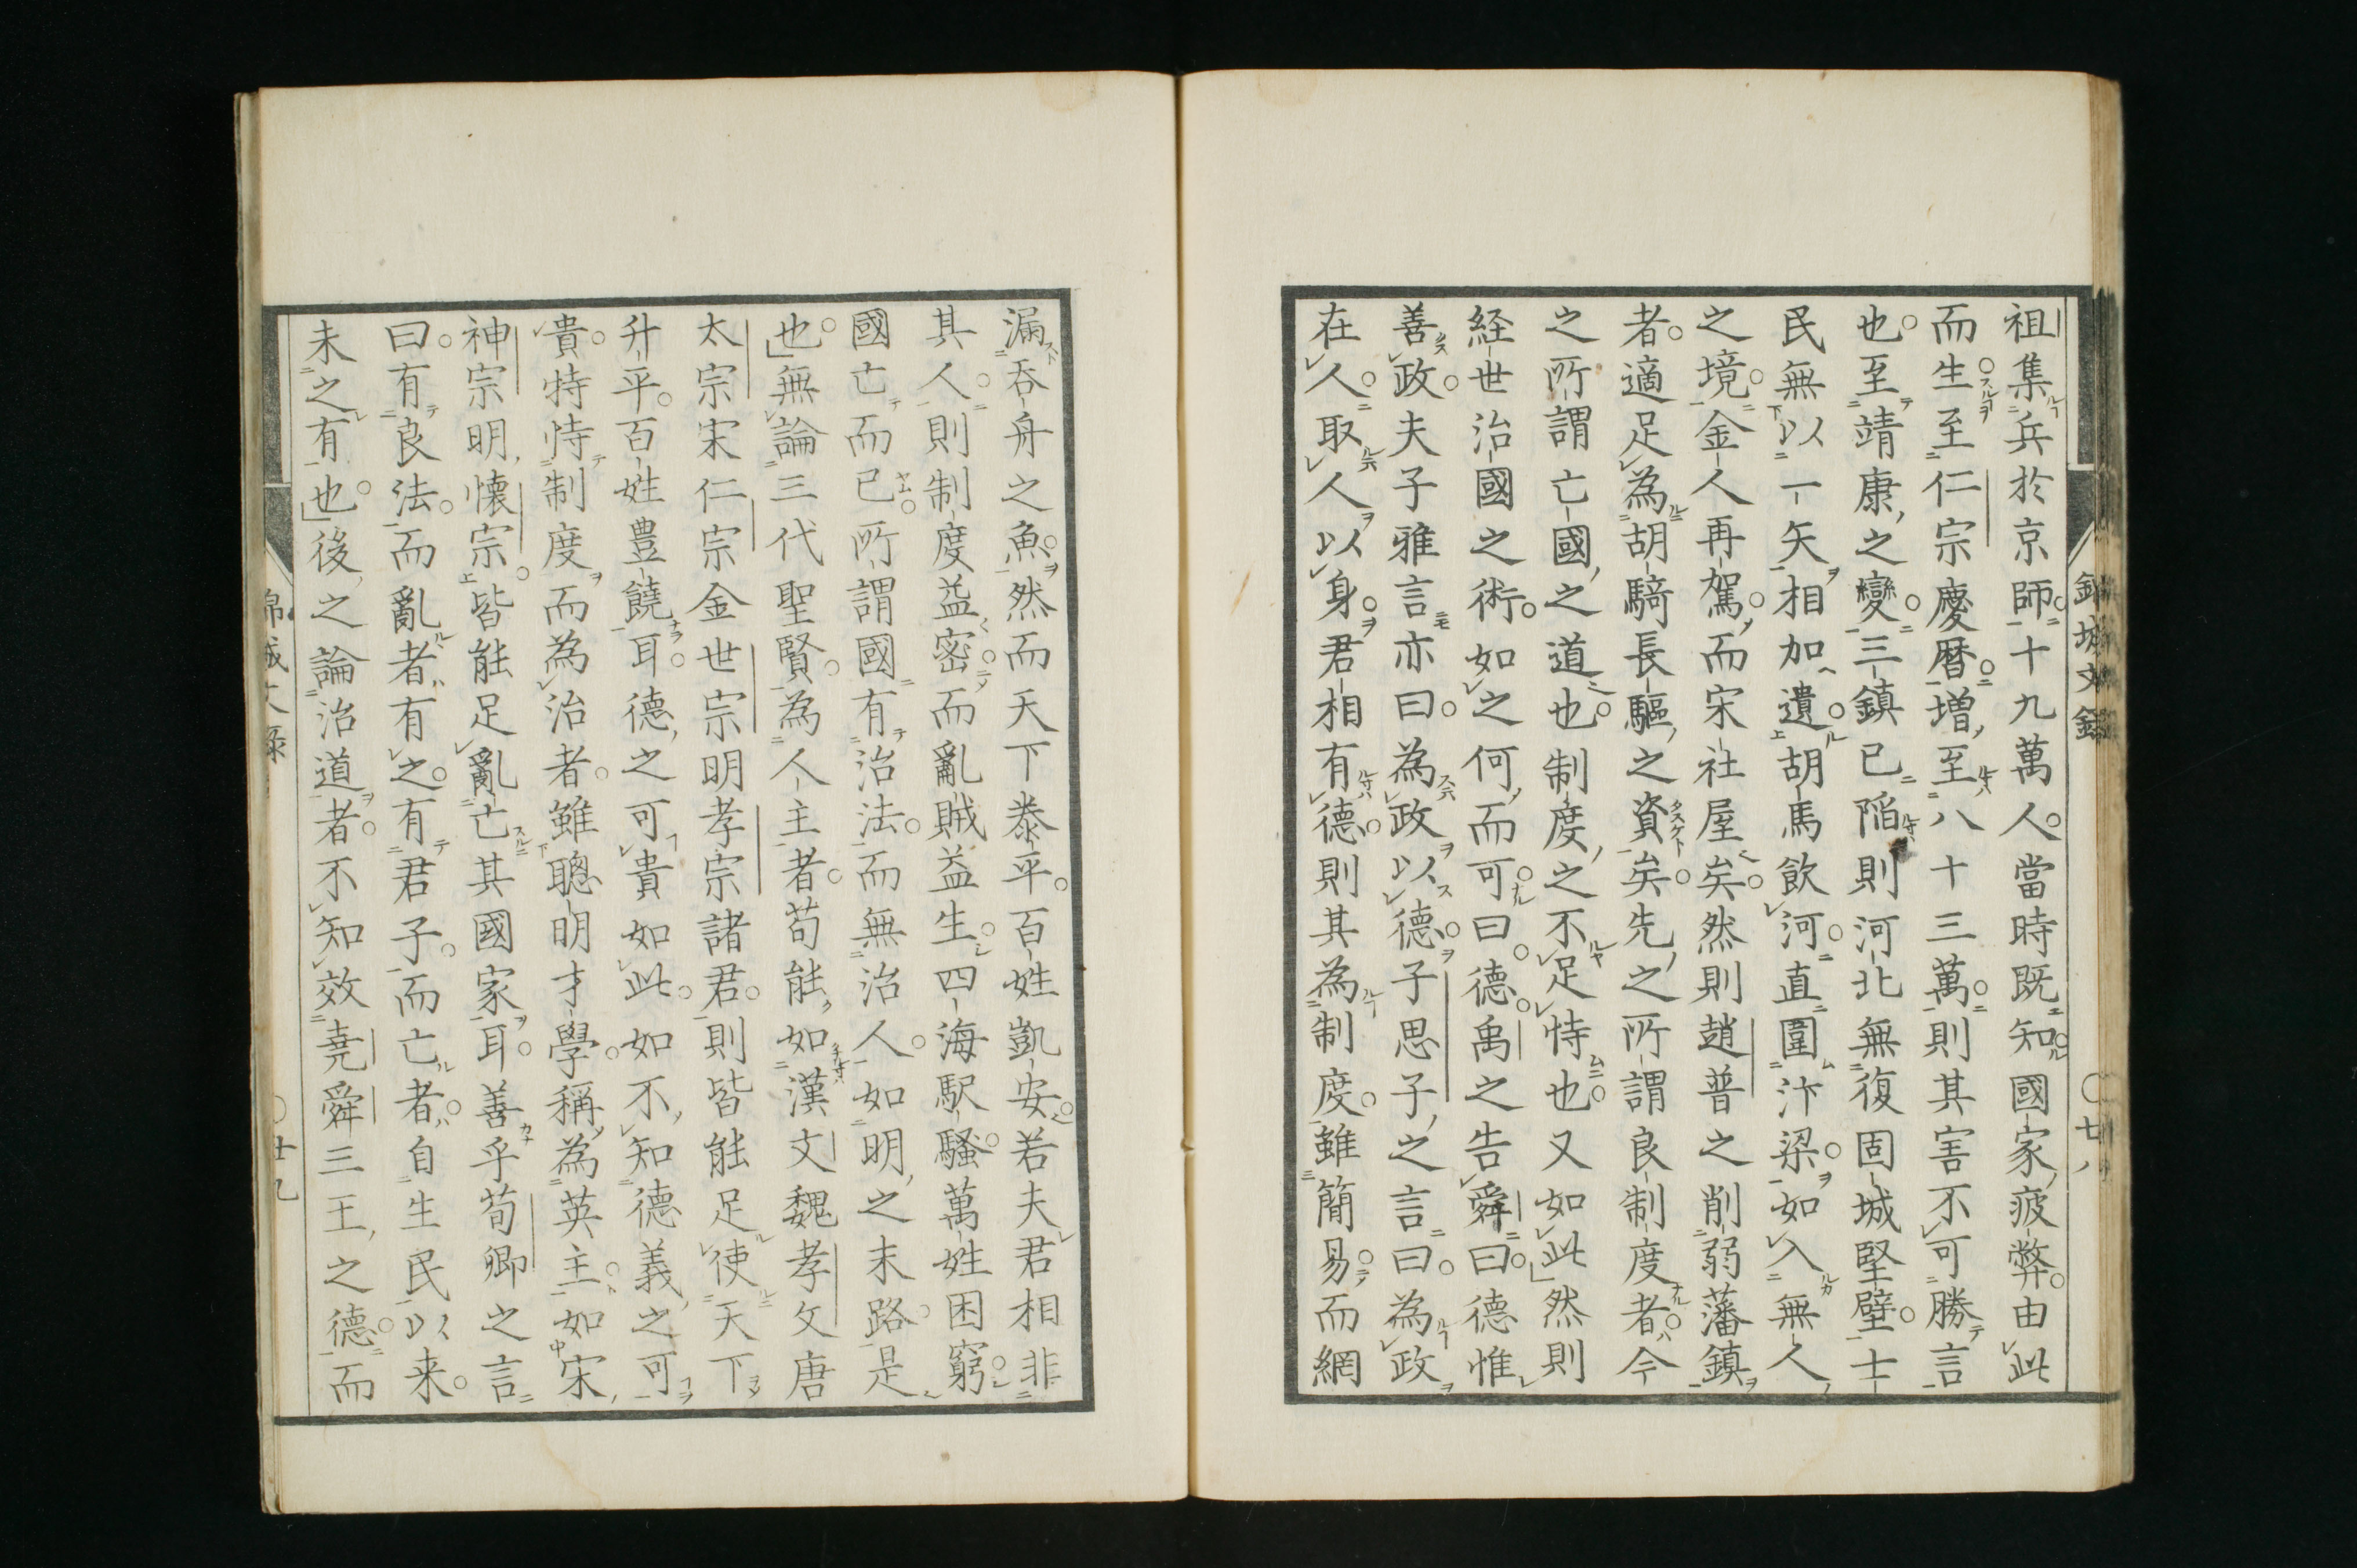 祖集兵於京師十九萬人當時既知國家疲弊由此
而生至仁宗慶暦增至八十三萬則其害不可勝言
也至靖康之變三鎮已陷則河北無復固城堅壁士
民無以一矢相加遺胡馬飲河直圍汴梁如入無人
之境金人再駕而宋社屋矣然則趙普之削弱藩鎮
者適足為胡騎長驅之資矣先之所謂良制度者今
之所謂亡國之道也制度之不足恃也又如此然則
経世治國之術如之何而可曰德禹之告舜曰德惟
善政夫子雅言亦曰為政以德子思子之言曰為政
在人取人以身君相有德則其為制度雖簡易而網
漏吞舟之魚然而天下泰平百姓凱安若夫君相非
其人則制度益密而亂賊益生四海駅騷萬姓困窮
國亡而已所謂國有治法而無治人如明之末路是
也無論三代聖賢為人主者苟能如漢文魏孝文唐
太宗宋仁宗金世宗明孝宗諸君則皆能足使天下
升平百姓豊饒耳德之可貴如此如不知德義之可
貴特恃制度而為治者雖聰明才學稱為英主如宋
神宗明懷宗皆能足亂亡其國家耳善乎荀卿之言
曰有良法而亂者有之有君子而亡者自生民以来
未之有也後之論治道者不知效堯舜三王之德而
錦城文録